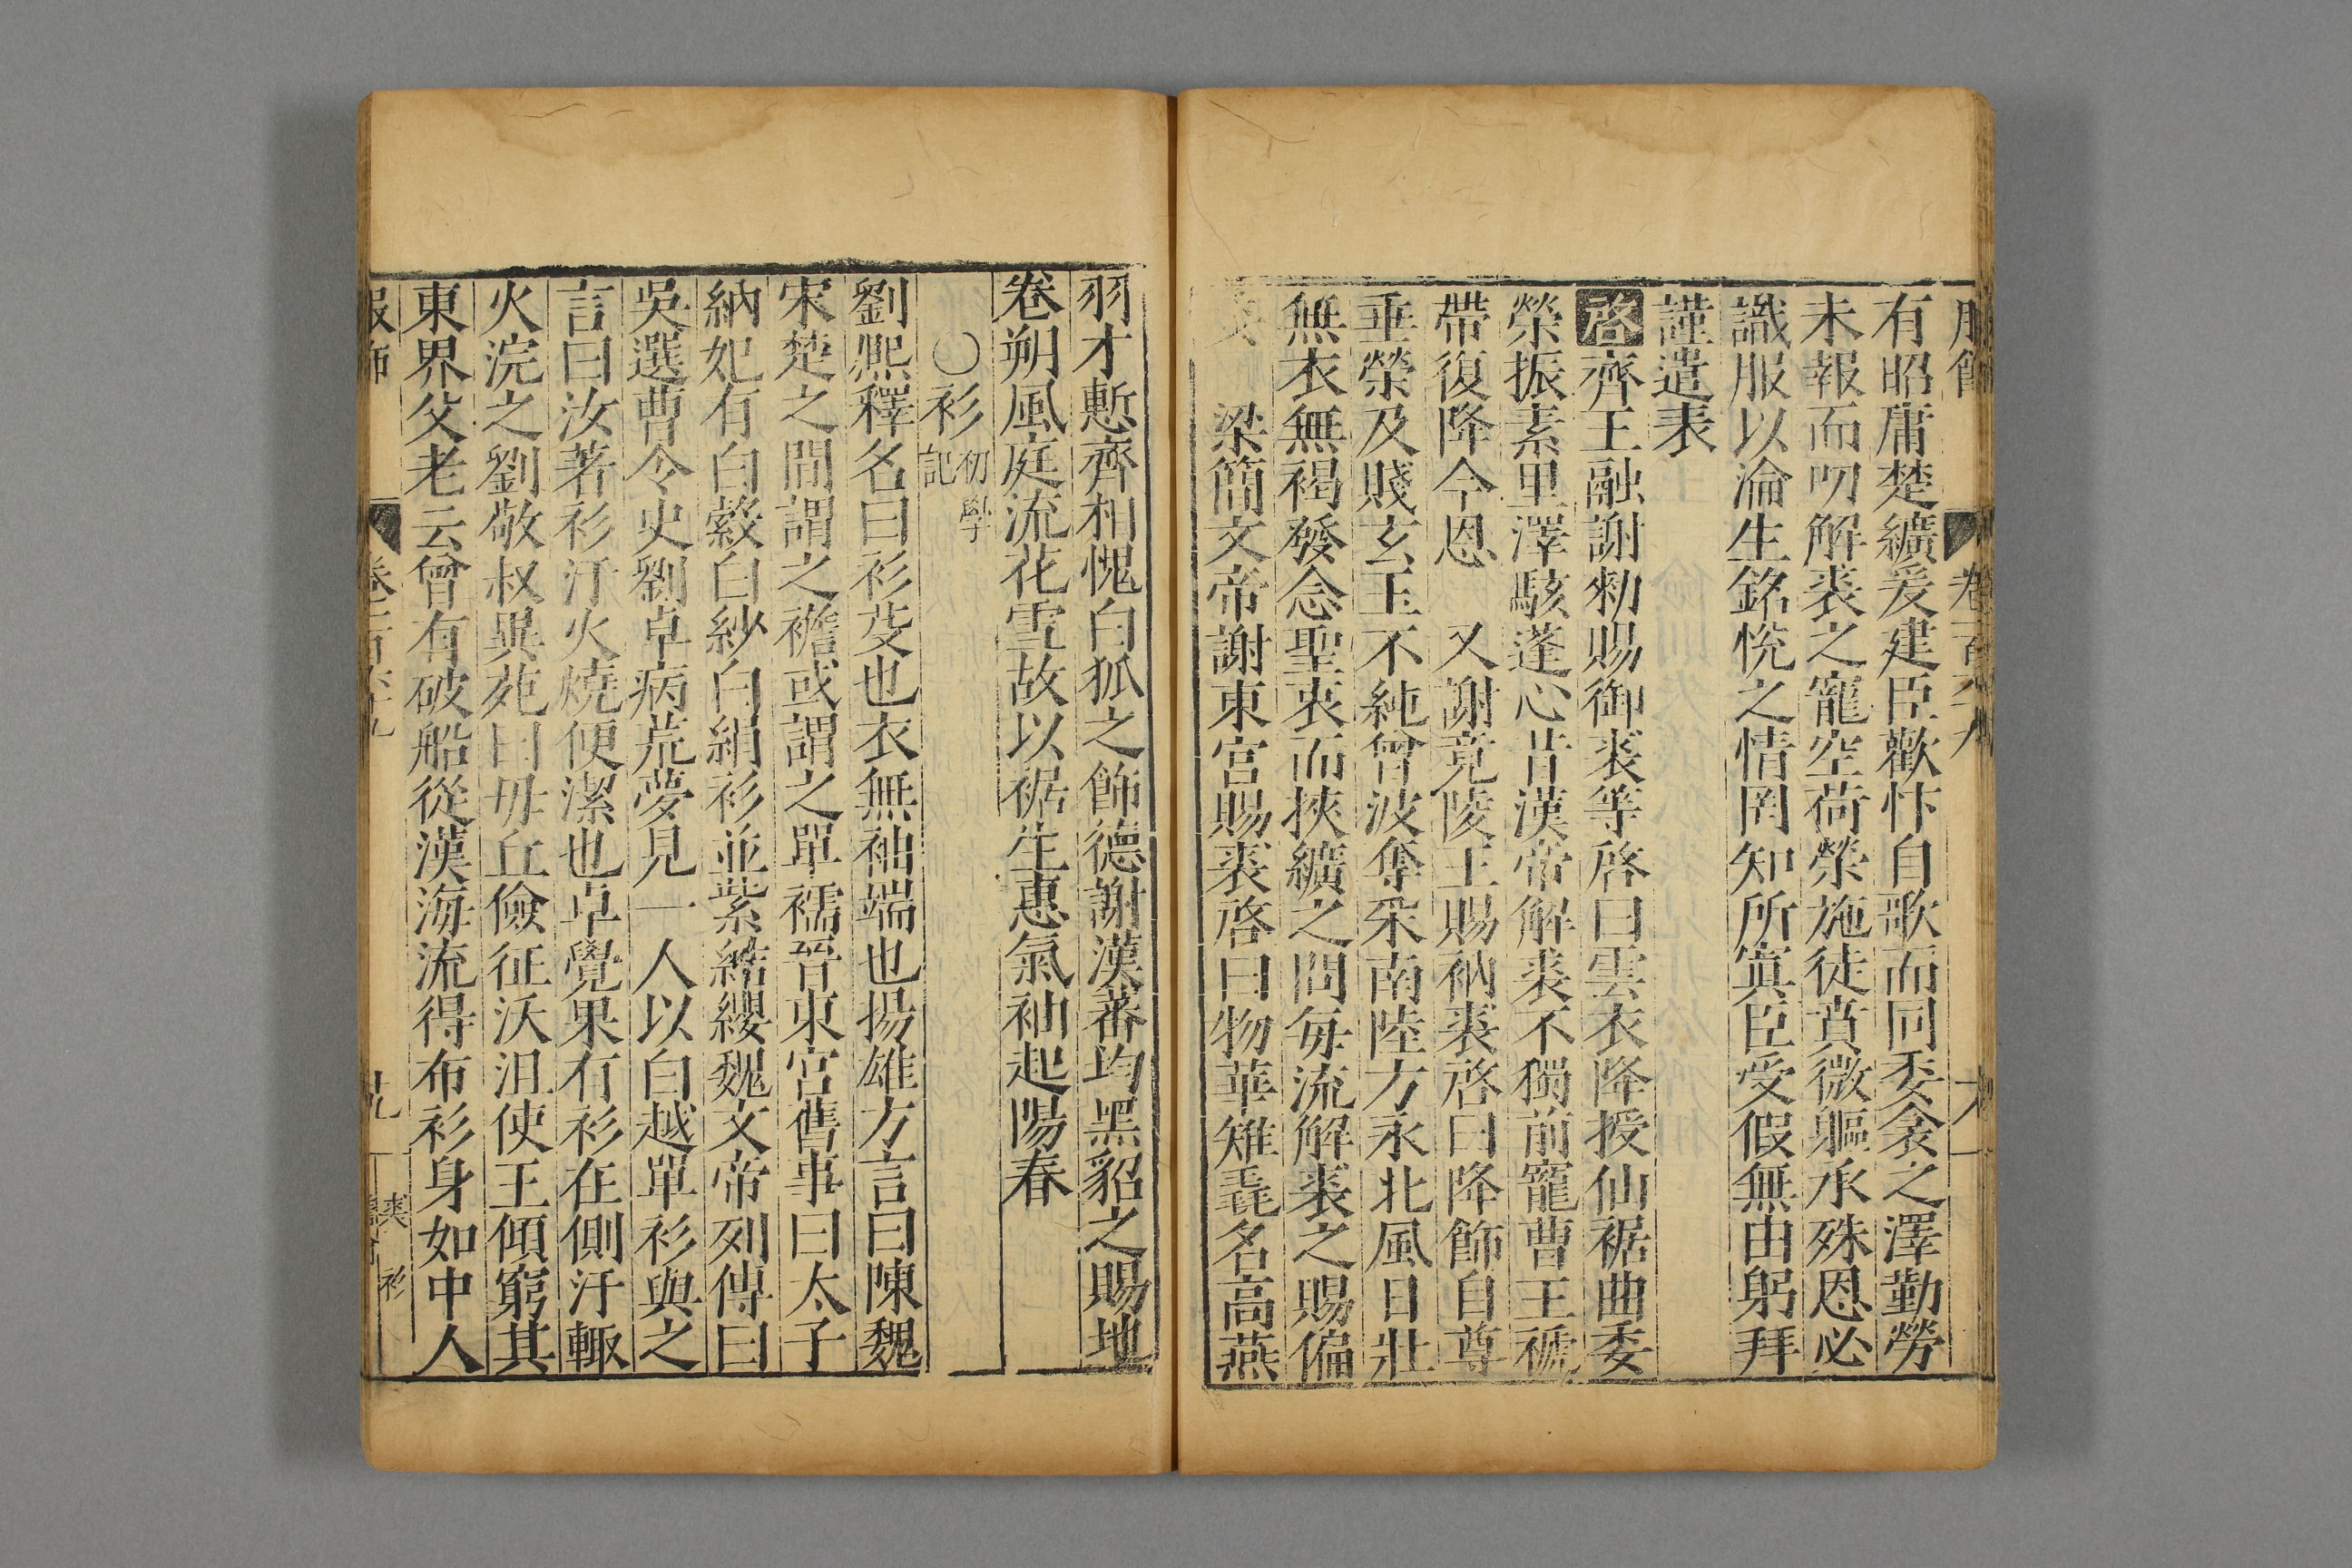 有昭庸楚纊爰建臣歡忭自歌而同委衾之澤勤勞
未報而叨解裘之寵空荷榮施徒賁微軀承殊恩必
識服以淪生銘恱之情罔知所寘臣受假無由躬拜
謹遣表
啓齊王融謝勑賜御裘等啓曰雲衣降授仙裾曲委
榮振素里澤駭蓬心昔漢帝解裘不獨前寵曹王褫
帶復降今恩　又謝竟陵王賜衲裘啓曰降飾自尊
垂榮及賤玄玉不純曾波奪采南陸方永北風日壯
無衣無褐發念聖衷而挾纊之問每流解裘之賜偏
梁簡文帝謝東宮賜裘啓曰物華雉毳名高燕
羽才慙齊相愧白狐之飾德謝漢蕃均黑貂之賜地
卷朔風庭流花雪故以裾生惠氣袖起陽春
〇衫初學記
劉熙釋名曰衫芟也衣無袖端也揚雄方言曰陳魏
宋楚之間謂之襜或謂之單襦晉東宮舊事曰太子
納妃有白縠白紗白絹衫並紫結纓魏文帝列傳曰
吳選曹令史劉卓病荒夢見一人以白越單衫與之
言曰汝著衫汙火燒便潔也卓覺果有衫在側汙輒
火浣之劉敬叔異苑曰毋丘儉征沃沮使王傾窮其
東界父老云曾有破船從漢海流得布衫身如中人
裘　衫